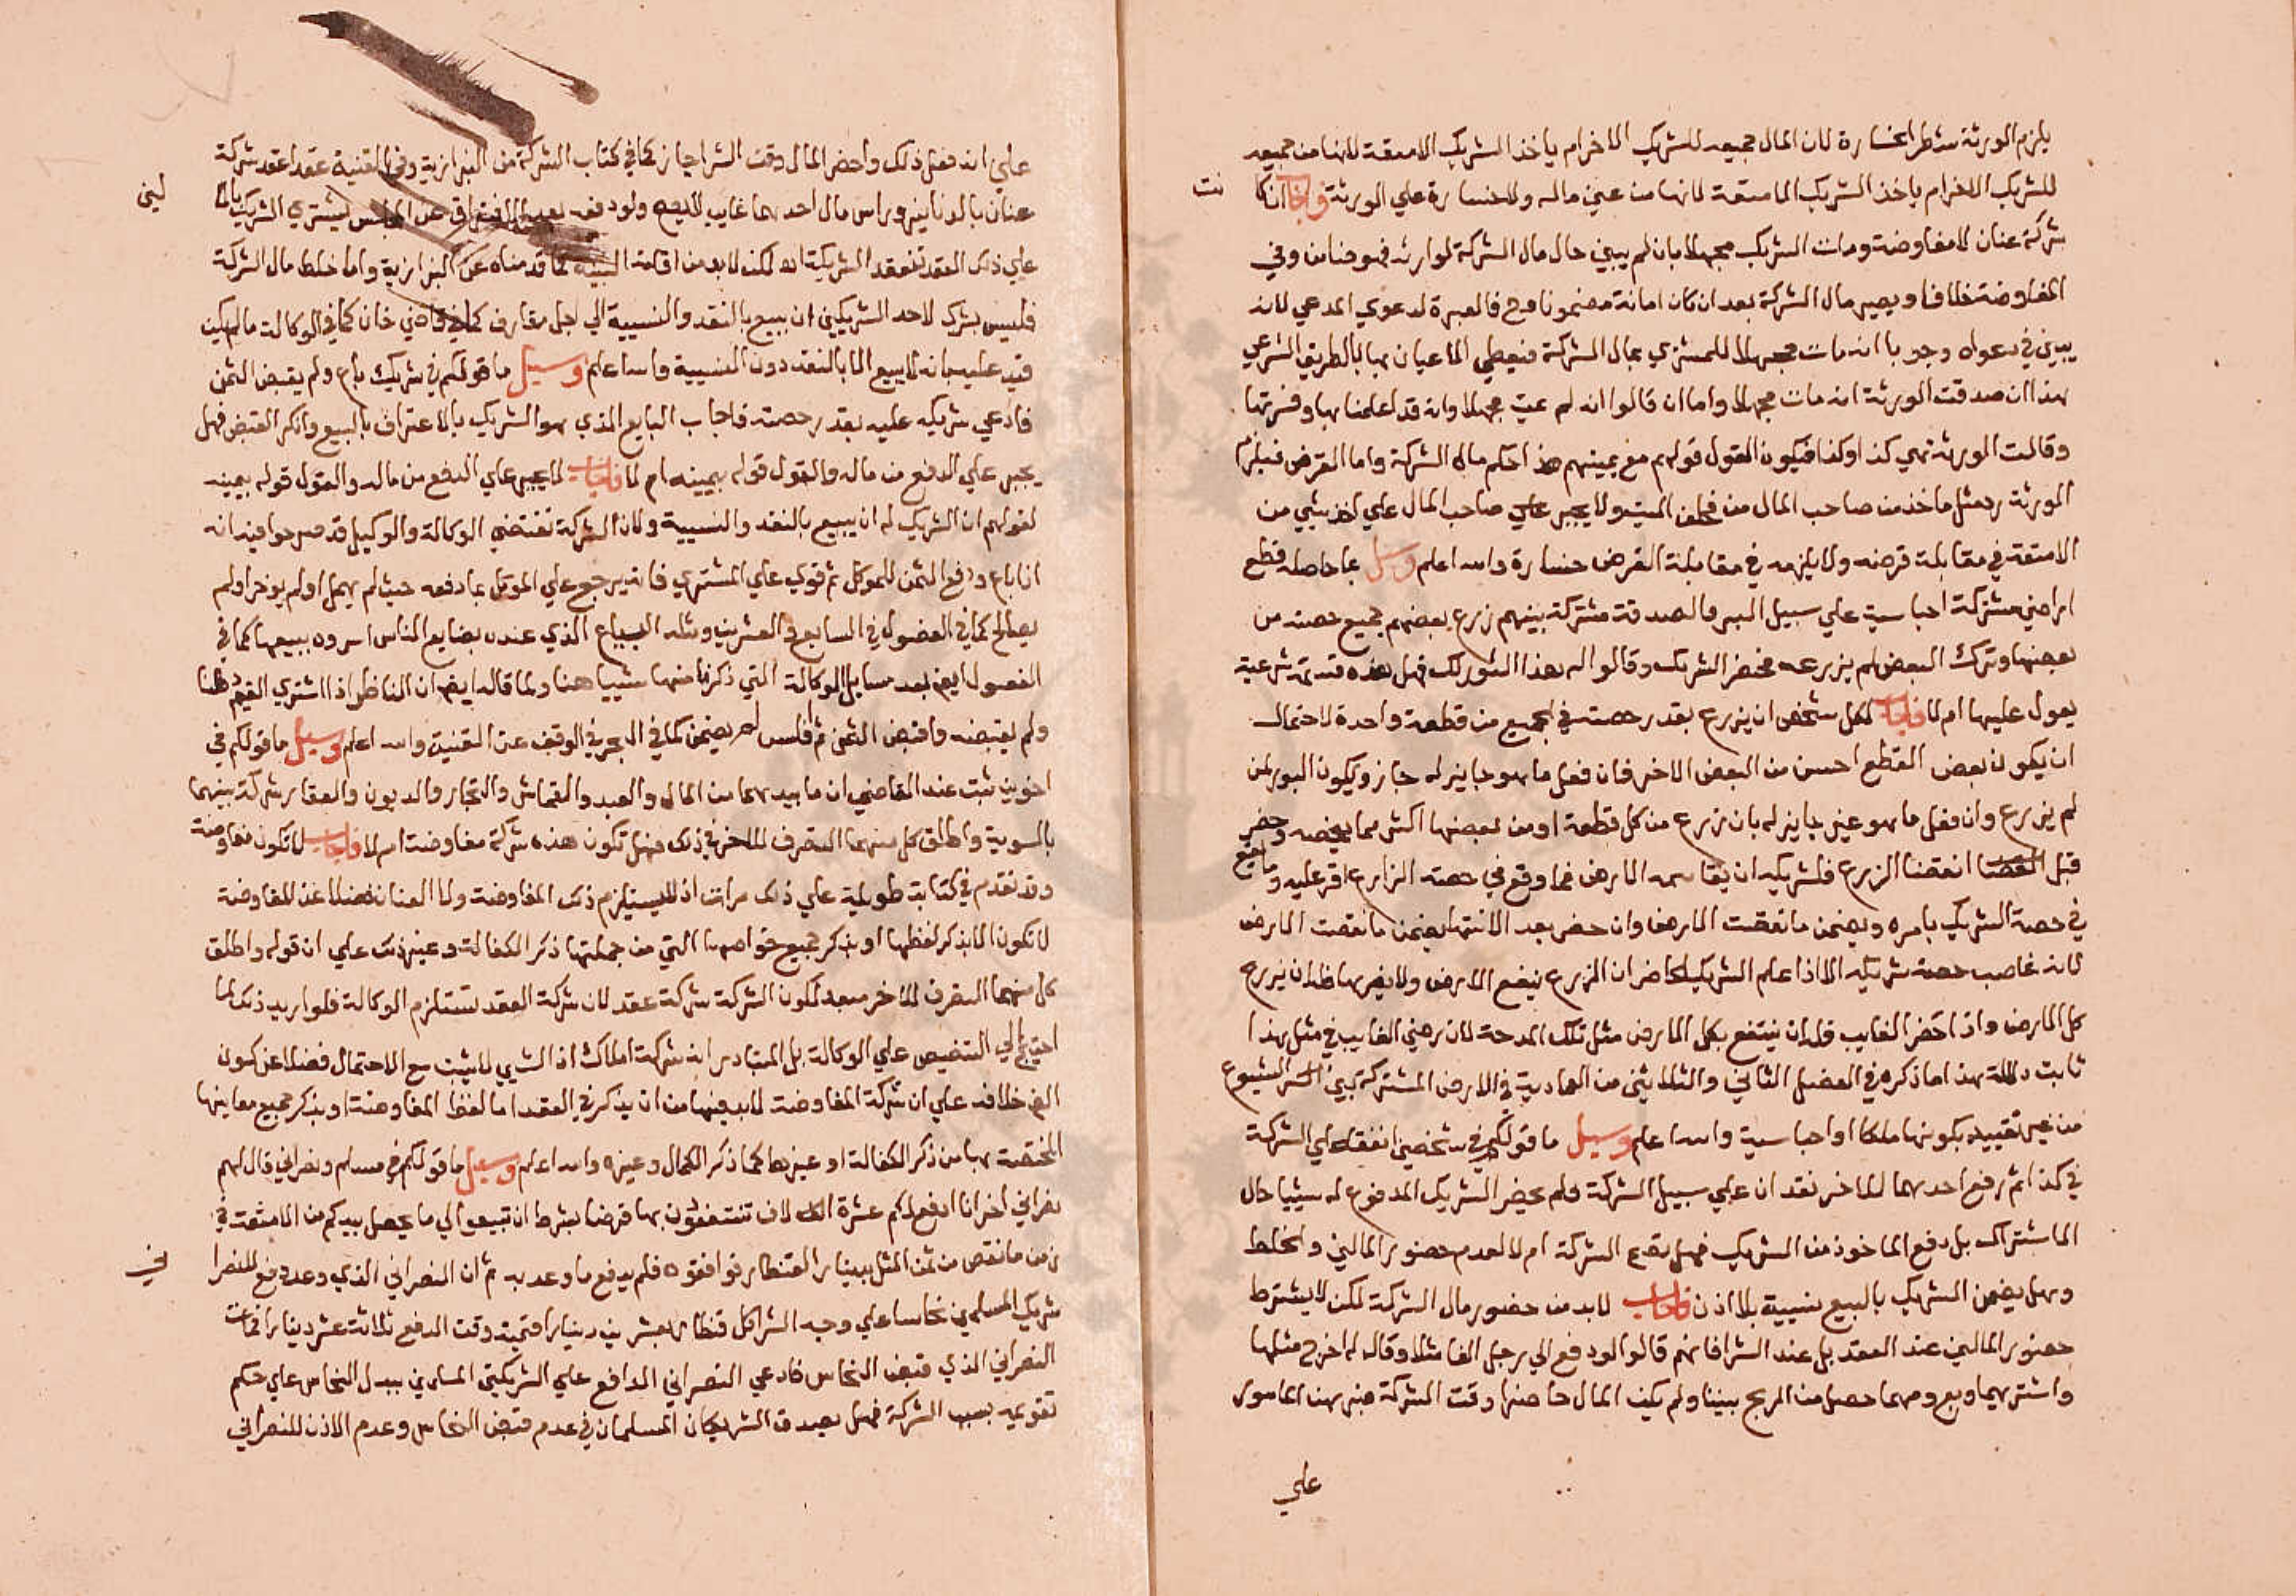 يلزم الورثة شطر الخسارة لان المال جميعه للشريك الاخر ام ياخذ الشريك الامتعة لانها من جميعه
للشريك الاخر ام ياخذ الشريك الامتعة لانها من عين ماله ولا خسارة علي الورثة فاجاب ان كا نت
شركة عنان لا مفاوضة ومات الشريك مجهلا بان لم يبين حال مال الشركة لوارثه فهو ضامن وفي
المفاوضة خلاف ويصير مال الشركة بعد ان كان امانة مضمونا وح فالعبرة لدعوي المدعي لانه
يبدي في دعواه وجوبا انه مات مجهلا للمشتري بمال الشركة فيعطي الاعيان بها بالطريق الشرعي
هذا ان صدقت الورثة انه مات مجهلا واما ان قالوا انه لم يمت مجهلا وانه قد اعلمنا بها وفسرتها
وقالت الورثة هي كذا وكذا فيكون القول قولهم مع يمينهم هذا حكم مال الشركة واما القرض فيلزم
الورثة رد مثل ما اخذ من صاحب المال من مخلف الميت ولا يجبر علي صاحب المال علي اخذ شي من
الامتعة في مقابلة قرضه ولا يلزمه في مقابلة القرض خسارة والله اعلم وسيل بما حاصله قطع
اراضي مشتركة احباسية علي سبيل البر والصدقة مشتركة بينهم زرع بعضهم جميع حصته من
بعضها وترك البعض لم يزرعه فحضر الشريك وقالوا له هذا البور لك فهل هذه قسمة شرعية
يعول عليها ام لا فاجاب لكل شخص ان يزرع بقدر حصته في الجميع من قطعة واحدة لاحتمال
ان يكون بعض القطع احسن من البعض الاخر فان فعل ما هو جايز له جاز ويكون البور لمن
لم يزرع وان فعل ما هو غير جايز له بان زرع من كل قطعة او من بعضها اكثر مما يخصه وحضر
قبل انقضا الزرع فلشريكه ان يقاسمه الارض فما وقع في حصة الزارع اقر عليه وما وقع
في حصة الشريك يامره ويضمن ما نقصت الارض وان حضر بعد الانتها يضمن ما نقصت الارض
لانه غاصب حصة شريكه الا اذا علم الشريك الحاضر ان الزرع ينفع الارض ولا يضرها فله ان يزرع
كل الارض واذا حضر الغايب فله ان ينتفع بكل الارض مثل تلك المدة لان رضي الغايب في مثل هذا
ثابت دلالة هذا ما ذكره في الفصل الثالث والثلاثين من العمادية في الارض المشتركة الشيوع
من غير تقييد بكونها ملكا او احباسية والله اعلم وسيل ما قولكم في شخصين اتفقا علي الشركة
في كذا ثم دفع احدهما للاخر نقدا علي سبيل الشركة ولم يحضر الشريك المدفوع له شيئا حال
الاشتراك بل دفع الماخوذ من الشريك فهل تصح الشركة ام لا لعدم حضور المالين والخلط
وهل يضمن الشريك بالبيع نسيية بلا اذن فاجاب لابد من حضور مال الشركة لكن لا يشترط
حضور المالين عند العقد بل عند الشرا فانهم قالوا لو دفع الي رجل الفا مثلا وقال له اخرج مثلها
واشتر بهما وبع ومهما حصل من الربح بيننا ولم يكن المال حاضرا وقت الشركة فبرهن المامور
علي
علي انه فعل ذلك واحضر المال وقت الشرا جاز كما في كتاب الشركة من البزازية وفي القنية عقدا عقد شركة
عنان بالدنانير وراس مال احدهما غايب لا يصح ولو دفعه بعد الافتراق عن المجلس ليشتري الشريك بالما لين
علي ذلك العقد تنعقد الشركة اه لكن لابد من اقامة البينة كما قدمناه عن البزازية واما خلط مال الشركة
فليس بشرط لاحد الشريكين ان يبيع بالنقد والنسيية الي اجل متعارف كما في قاضي خان كما في الوكالة ما لم يكن
قيد عليه بانه لا يبيع الا بالنقد دون النسيية والله اعلم وسيل ما قولكم في شريك باع ولم يقبض الثمن
فادعي شريكه عليه بقدر حصته فاجاب البايع الذي هو الشريك بالاعتراف بالبيع وانكر القبض فهل
يجبر علي الدفع من ماله والقول قوله بيمينه ام لا فاجاب لا يجبر علي الدفع من ماله والقول قوله بيمينه
لقولهم ان الشريك له ان يبيع بالنقد والنسيية ولان الشركة تقتضي الوكالة والوكيل قد صرحوا فيه انه
اذا باع ودفع الثمن للموكل ثم توي علي المشتري فانه يرجع علي الموكل بما دفعه حيث لم يهمل او لم يوخر او لم
يصالح كما في الفصول في السابع والعشرين ومثله البياع الذي عنده بضايع الناس امروه ببيعها كما في
الفصول ايضا بعد مسايل الوكالة التي ذكرنا منها شييا هنا ولما قاله ايضا ان الناظر اذا اشتري القيم قطنا
ولم يقبضه واقبض الثمن ثم افلس لم يضمن كما في البحر في الوقف عن القنية والله اعلم وسيل ما قولكم في
اخوين ثبت عند القاضي ان ما بيدهما من المال والعبيد والقماش والتجار والديون والعقار شركة بينهما
بالسوية واطلق كل منهما التصرف للاخر في ذلك فهل تكون هذه شركة مفاوضة ام لا فاجاب لا تكون مفاوضة
وقد تقدم في كتابة طويلة علي ذلك مرات اذ لا يستلزم ذلك المفاوضة ولا العنان فضلا عن المفاوضة
لا تكون الا بذكر لفظها او بذكر جميع خواصها التي من جملتها ذكر الكفالة وغير ذلك علي ان قوله واطلق
كل منهما التصرف للاخر مبعد لكون الشركة شركة عقد لان شركة العقد تستلزم الوكالة فلو اريد ذلك لما
احتيج الي التنصيص علي الوكالة بل المتبادر انه شركة املاك اذ الشي لا يثبت مع الاحتمال فضلا عن كون
الغير خلافه علي ان شركة المفاوضة لابد فيها من ان يذكر في العقد اما لفظ المفاوضة او يذكر جميع معانيها
المختصة بها من ذكر الكفالة او غيرها كما ذكر الكمال وغيره والله اعلم وسيل ما قولكم في مسلم ونصراني قال لهم
نصراني اخر انا ادفع لكم عشرة الاف تنتفعون بها قرضا بشرط ان تبيعوا لي ما يحصل بيدكم من الامتعة في
زمن ما نقص من ثمن المثل بدينار القنطار فوافقوه فلم يدفع ما وعد به ثم ان النصراني الذي وعد دفع للنصرا ني
شريك المسلمين نحاسا علي وجه الشرا كل قنطار بعشرين دينارا وقيمته وقت الدفع ثلاثة عشر دينارا فمات
النصراني الذي قبض النحاس فادعي النصراني الدافع علي الشريكين المسلمين ببدل النحاس علي حكم
تقويمه بسبب الشركة فهل يصدق الشريكان المسلمان في عدم قبض النحاس وعدم الاذن للنصراني